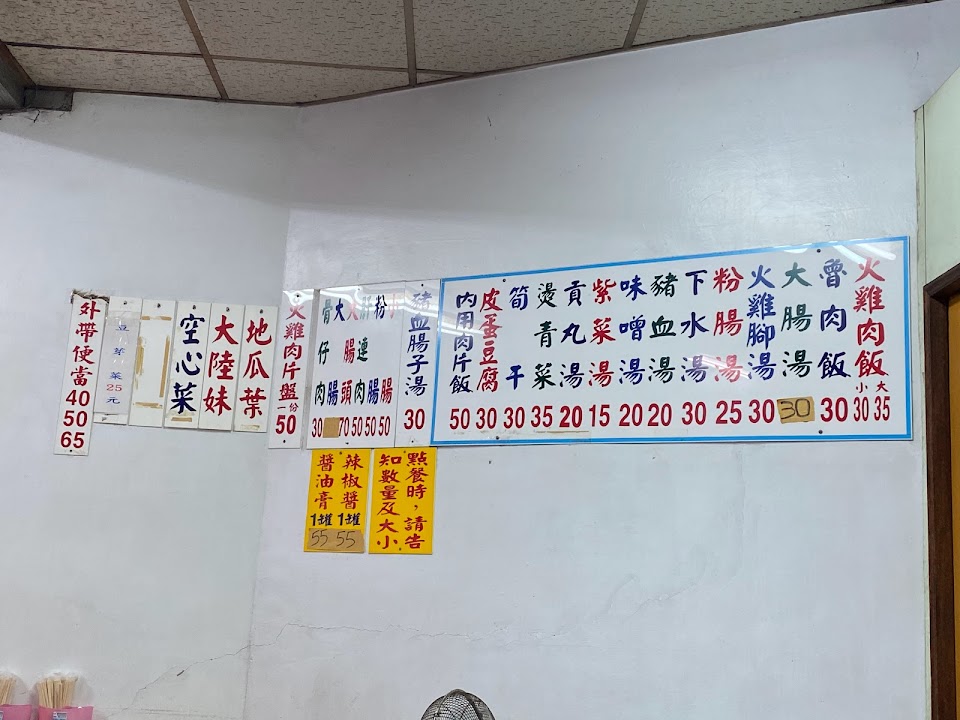 火雞肉飯 大35 小30
魯肉飯 30
大腸湯 30
火雞腳湯 30
粉腸湯 25
下水湯 30
豬血湯 20
味噌湯 20
紫菜湯 15
貢丸湯 20
燙青菜 35
筍干 30
皮蛋豆腐 30
內用肉片飯 50
豬血腸子湯 30
小腸 50
粉腸 50
肝連肉 50
大腸頭 70
大腸
骨仔肉 30
火雞肉片盤 一份 50
地瓜葉
大陸妹
空心菜
豆芽菜25元
外帶便當 40 50 65
點餐時，請告
知數量及大小
辣椒醬 1罐 55
醬油膏 1罐 55